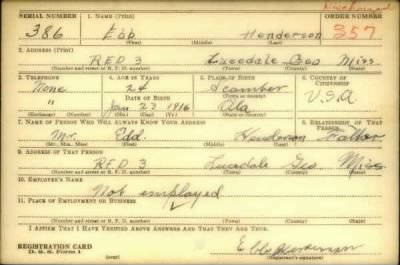 Discharged
SERIAL NUMBER 1. NAME (Print) ORDER NUMBER
386 Ebb Henderson 357
(First) (Middle) (Last)
2. ADDRESS (Print)
RFD 3 Lucedale Geo Miss
(Number and street or R. F. D. number) (Town) (County) (State)
3. TELEPHONE 4. AGE IN YEARS 5. PLACE OF BIRTH 6. COUNTRY OF CITIZENSHIP
None 24 Scamber
DATE OF BIRTH (Town or county)
" Jan 23 1916 Ala U.S.A
(Exchange) (Number) (Mo.) (Day) (Yr.) (State or country)
7. NAME OF PERSON WHO WILL ALWAYS KNOW YOUR ADDRESS 8. RELATIONSHIP OF THAT PERSON
Mr. Edd Henderson Father
(Mr., Mrs., Miss) (First) (Middle) (Last)
9. ADDRESS OF THAT PERSON
RFD 3 Lucedale Geo Miss
(Number and street or R. F. D. number) (Town) (County) (State)
10. EMPLOYER'S NAME
Not employed
11. PLACE OF EMPLOYMENT OR BUSINESS
(Number and street or R. F. D. number) (Town) (County) (State)
I AFFIRM THAT I HAVE VERIFIED ABOVE ANSWERS AND THAT THEY ARE TRUE.
REGISTRATION CARD
D. S. S. Form 1 Ebb Henderson
(Registrant's signature)